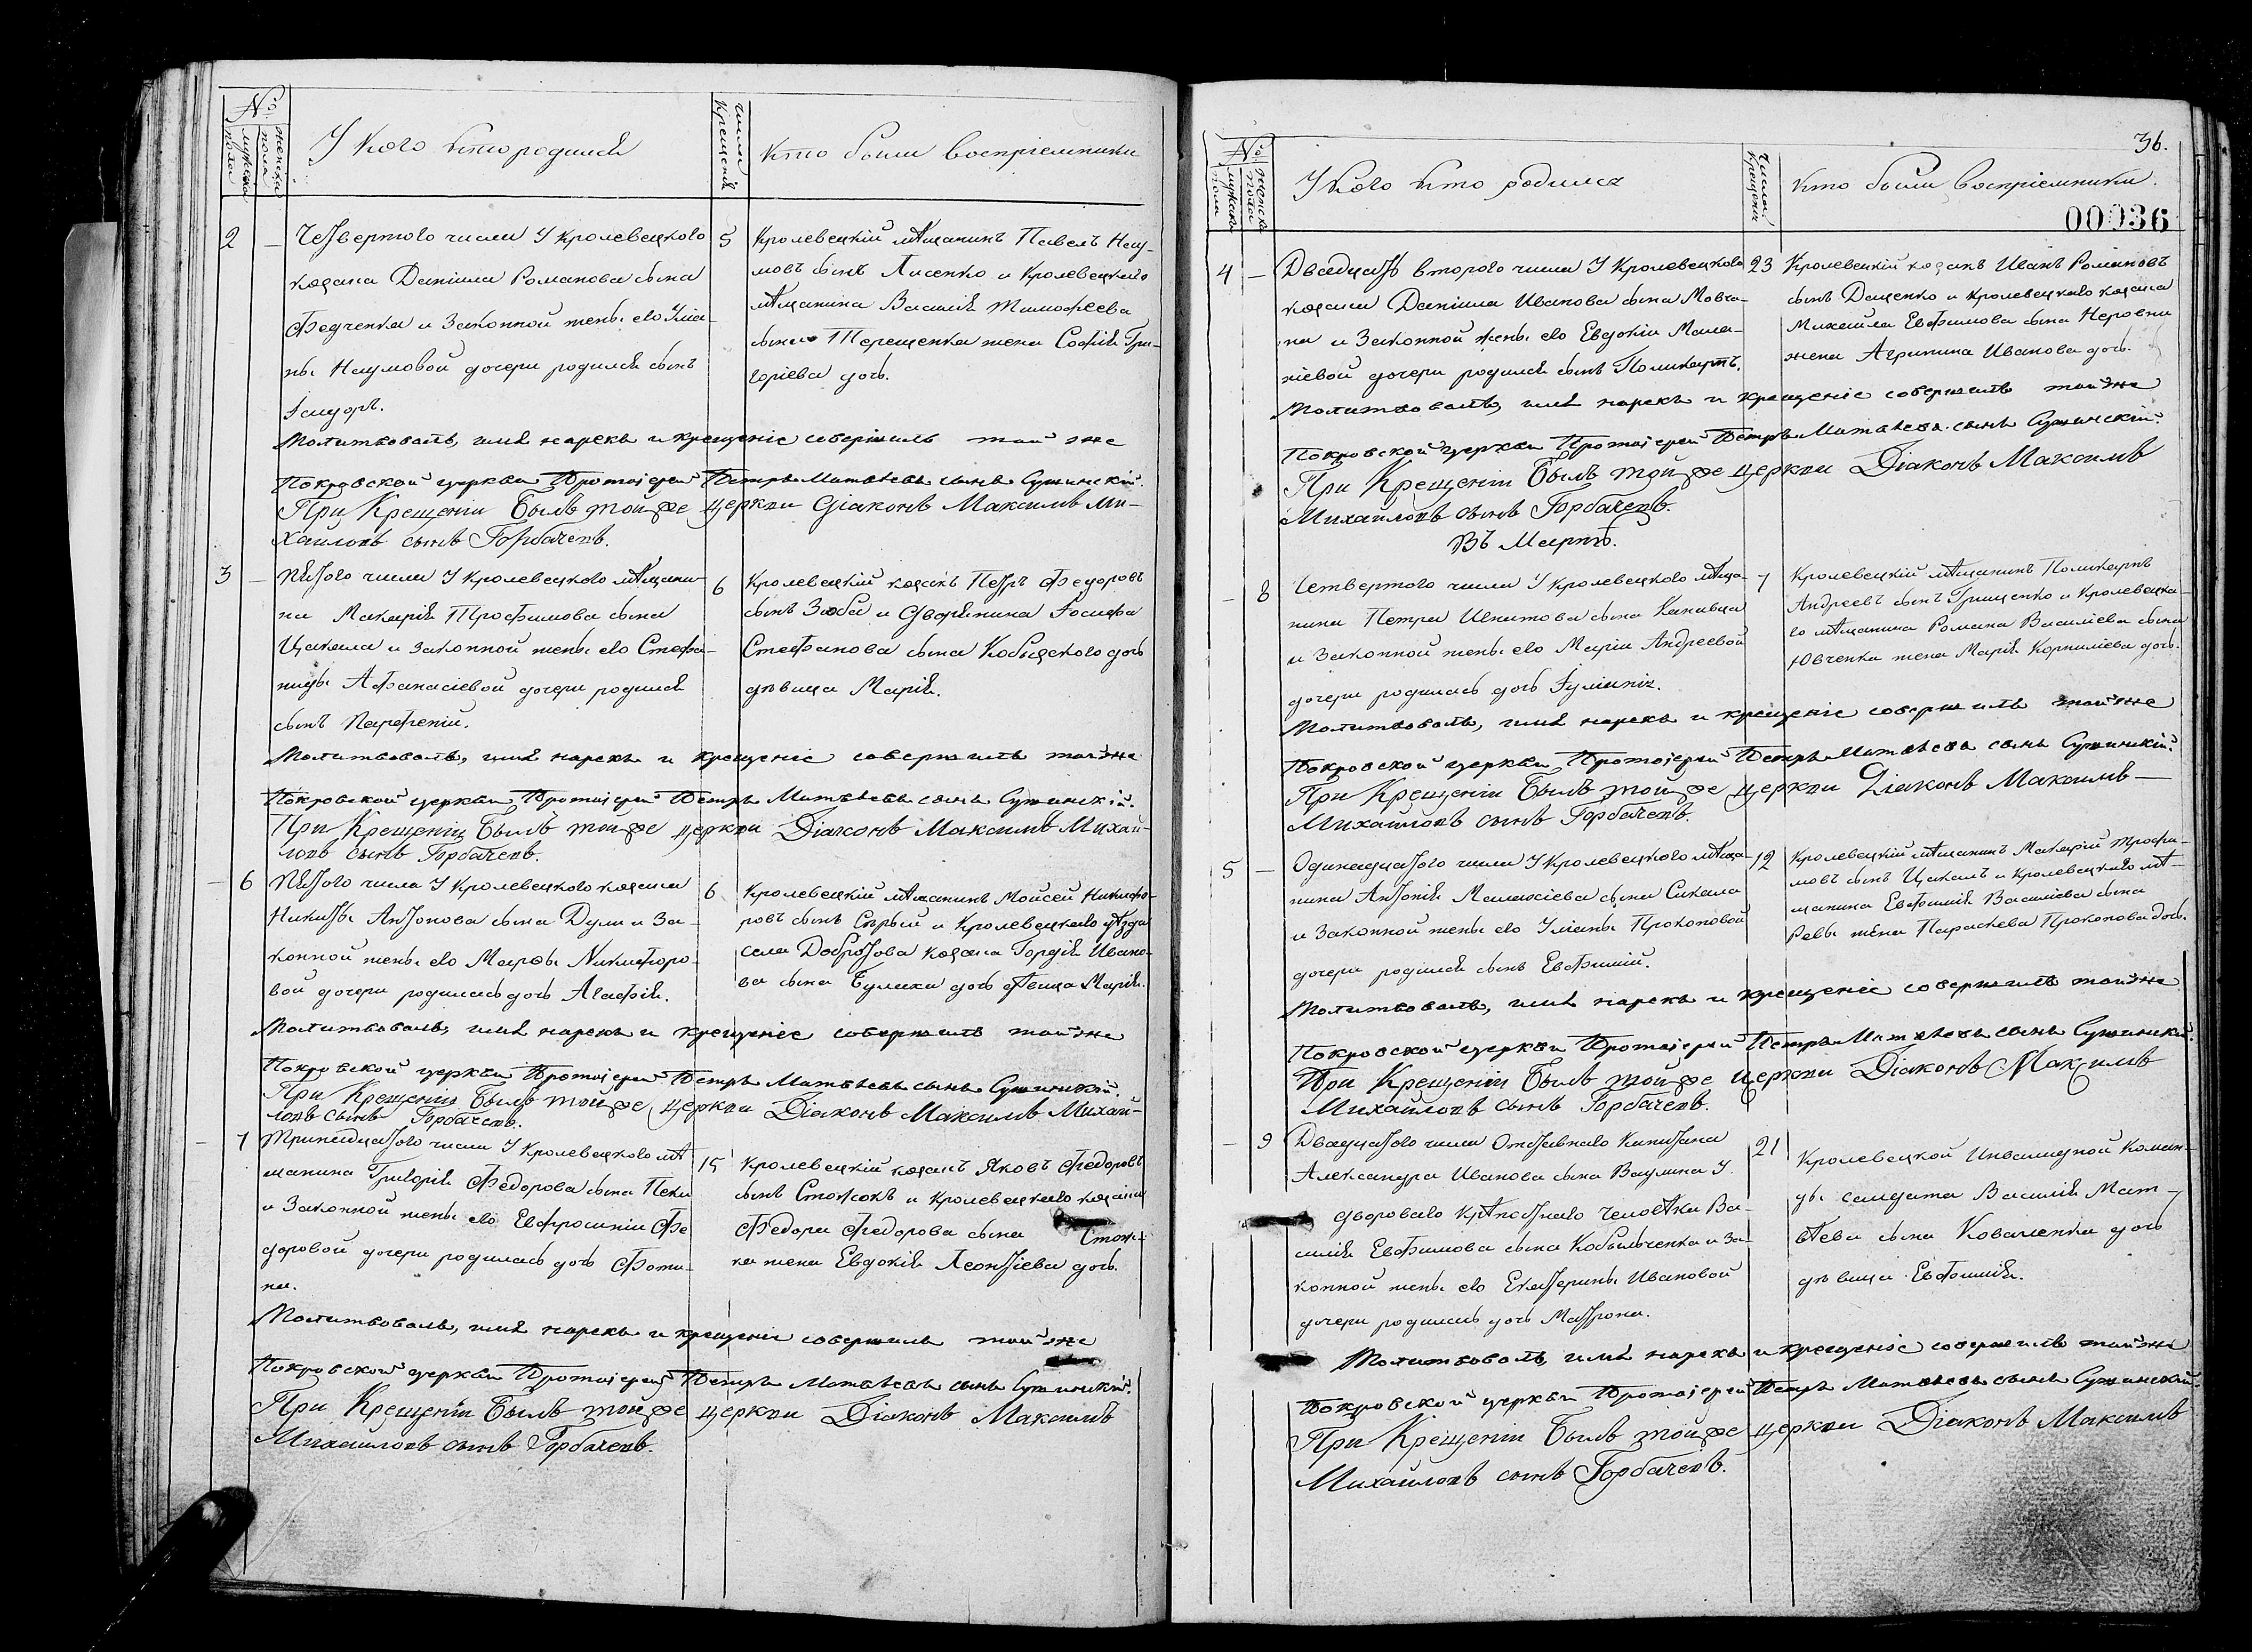 №
мужеска пола
женска пола
У кого кто родился
числа Крещенія
кто были воспріемники
2 — Четвертого числа У Кролевецкого
козака Даніила Романова сына
Федченка и Законной жены его Улiа-
ны Наумовой дочери родился сынъ
Ісидоръ.
5 Кролевецкій мѣщанинъ Павелъ Нау-
мовъ сынъ Лисенко и Кролевецкаго
мѣщанина Василія Тимофеева
сына Терещенка жена Софія Гри-
горіева дочь.
Молитвовалъ, имя нарекъ и крещеніе совершилъ той же
Покровской церкви Протоіерей Петръ Матвѣевъ сынъ Сушинскій.
При Крещеніи Былъ той же церкви Діаконъ Максимъ Ми-
хайловъ сынъ Горбачевъ.
3 — Пятого числа У Кролевецкого мѣщани-
на Макарія Трофимова сына
Цакала и законной жены его Стефа-
ниды Афанасіевой дочери родился
сынъ Парфеній.
6 Кролевецкій козакъ Петръ Федоровъ
сынъ Зюба и Дворянина Іосифа
Стефанова сына Кобызского дочь
дѣвица Марія.
Молитвовалъ, имя нарекъ и крещеніе совершилъ той же
Покровской церкви Протоіерей Петръ Матвѣевъ сынъ Сушинскій.
При Крещеніи Былъ той же церкви Діаконъ Максимъ Михай-
ловъ сынъ Горбачевъ.
— 6 Пятого числа У Кролевецкого козака
Никиты Антонова сына Дули и За-
конной жены его Марфы Никифоро-
вой дочери родилась дочь Агафія.
6 Кролевецкій мѣщанинъ Моисей Никифо-
ровъ сынъ Сѣрый и Кролевецкаго уѣзда
села Добротова козака Гордія Ивано-
ва сына Булаки дочь дѣвица Марія.
Молитвовалъ, имя нарекъ и крещеніе совершилъ той же
Покровской церкви Протоіерей Петръ Матвѣевъ сынъ Сушинскій.
При Крещеніи Былъ той же церкви Діаконъ Максимъ Михай-
ловъ сынъ Горбачевъ.
— 7 Тринадцатого числа У Кролевецкого мѣ
щанина Григорія Федорова сына Пеки
и Законной жены его Евфросиніи Фе
доровой дочери родилась дочь Фоти-
на.
15 Кролевецкій козакъ Яковъ Федоровъ
сынъ Стожокъ и Кролевецкаго козака
Федора Федорова сына Стож-
ка жена Евдокія Леонтіева дочь.
Молитвовалъ, имя нарекъ и крещеніе совершилъ той же
Покровской церкви Протоіерей Петръ Матвѣевъ сынъ Сушинскій.
При Крещеніи Былъ той же церкви Діаконъ Максимъ
Михайловъ сынъ Горбачевъ.
36.
№
мужеска пола
женска пола
У кого кто родился
Числа Крещенія
кто были воспріемники.
00036
4 — Двадцать второго числа У Кролевецкого
козака Даніила Иванова сына Мовча-
на и Законной жены его Евдокіи Мала-
хіевой дочери родился сынъ Поликарпъ.
23 Кролевецкій козакъ Иванъ Романовъ
сынъ Даценко и Кролевецкаго козака
Михаила Евфимова сына Неровни
жена Агрипина Иванова дочь.
Молитвовалъ, имя нарекъ и крещеніе совершилъ той же
Покровской церкви Протоіерей Петръ Матвѣевъ сынъ Сушинскій.
При Крещеніи Былъ той же церкви Діаконъ Максимъ
Михайловъ сынъ Горбачевъ.
Въ Мартѣ.
— 8 Четвертого числа У Кролевецкого мѣща-
нина Петра Игнатова сына Канивца
и Законной жены его Маріи Андреевой
дочери родилась дочь Іуліанія.
7 Кролевецкій мѣщанинъ Поликарпъ
Андреевъ сынъ Грищенко и Кролевецка-
го мѣщанина Романа Василіева сына
Ювченка жена Марія Корниліева дочь.
Молитвовалъ, имя нарекъ и крещеніе совершилъ той же
Покровской церкви Протоіерей Петръ Матвѣевъ сынъ Сушинскій.
При Крещеніи Былъ той же церкви Діаконъ Максимъ
Михайловъ сынъ Горбачевъ.
5 — Одинадцатого числа У Кролевецкого мѣща-
нина Антонія Малахіева сына Сикала
и Законной жены его Уліаны Прокоповой
дочери родился сынъ Евфимій.
12 Кролевецкій мѣщанинъ Макарій Трофи-
мовъ сынъ Цакалъ и Кролевецкаго мѣ-
щанина Евфимія Василіева сына
Ревы жена Параскева Прокопова дочь.
Молитвовалъ, имя нарекъ и крещеніе совершилъ той же
Покровской церкви Протоіерей Петръ Матвѣевъ сынъ Сушинскій.
При Крещеніи Былъ той же церкви Діаконъ Максимъ
Михайловъ сынъ Горбачевъ.
— 9 Двадцатого числа Отставнаго Капитана
Александра Иванова сына Ваулина У
двороваго крѣпостнаго человѣка Ва-
силія Евфимова сына Кобыльченка и За-
конной жены его Екатерины Ивановой
дочери родилась дочь Матрона.
21 Кролевецкой Инвалидной Коман-
ды салдата Василія Мат-
вѣева сына Коваленка дочь
дѣвица Евфимія.
Молитвовалъ, имя нарекъ и крещеніе совершилъ той же
Покровской церкви Протоіерей Петръ Матвѣевъ сынъ Сушинскій.
При Крещеніи Былъ той же церкви Діаконъ Максимъ
Михайловъ сынъ Горбачевъ.